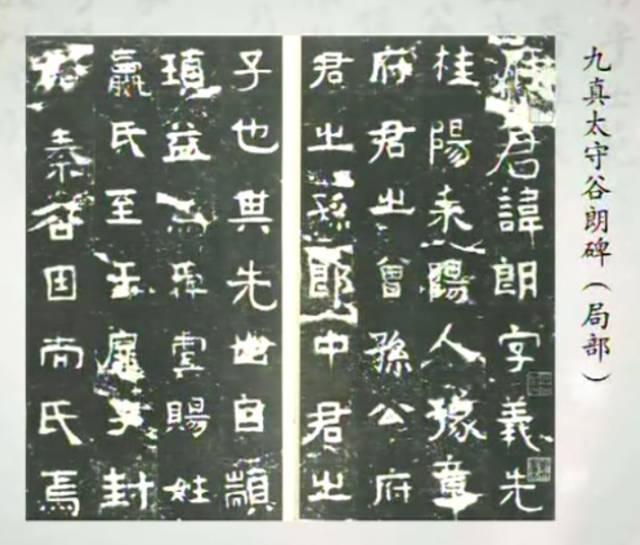 九真太守谷朗碑（局部）
君諱朗字義先
桂陽耒陽人豫章
府君之曾孫公府
君之孫郎中君之
子也其先世自顓
頊益爲舜虞賜姓
嬴氏至于子封
秦谷因而氏焉